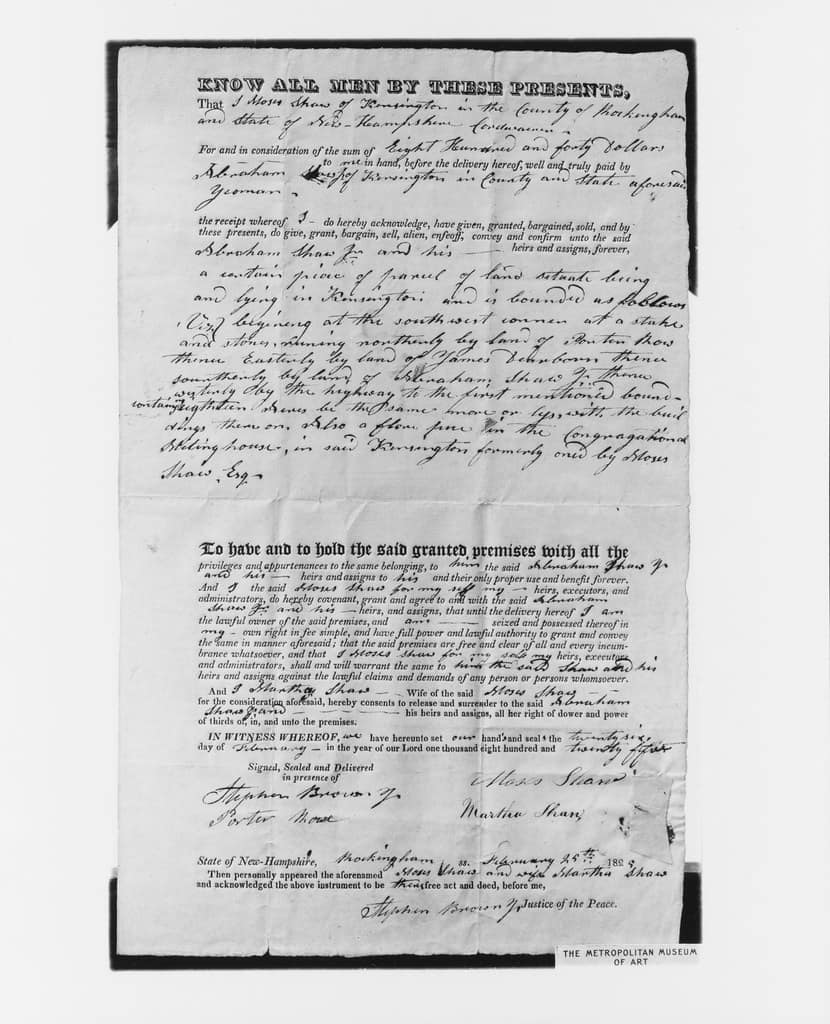 KNOW ALL MEN BY THESE PRESENTS,
That I Moses Shaw of Kensington in the County of Rockingham
and State of New-Hampshire Cordwainer
For and in consideration of the sum of Eight Hundred and forty Dollars
to me in hand, before the delivery hereof, well and truly paid by
Abraham of Kensington in County and State aforesaid
Yeoman
the receipt whereof I do hereby acknowledge, have given, granted, bargained, sold, and by
these presents, do give, grant, bargain, sell, alien, enfeoff, convey and confirm unto the said
Abraham Shaw Jr. and his heirs and assigns, forever,
a certain piece of parcel of land situate being
and lying in Kensington and is bounded as follows
(Viz) begining at the southwest corner at a stake
and stones, runing northerly by land of Porter
thence Easterly by land of James Dearborn thence
sourtherly by land of Abraham Shaw Jr thence
westerly by the highway to the first mentioned bound-
containing eighteen Acres be the same more or less, with the buil
dings there on, Also a flore pue in the Congragational
Meting house, in said Kensington formerly oned by Moses
Shaw Esq
To have and to hold the said granted premises with all the
privileges and appurtenances to the same belonging, to him the said Abraham Shaw Jr
and his heirs and assigns to his and their only proper use and benefit forever.
And I the said Moses Shaw for my self my heirs, executors, and
administrators, do hereby covenant, grant and agree to and with the said Abraham
Shaw Jr. and his heirs, and assigns, that until the delivery hereof I am
the lawful owner of the said premises, and am seized and possessed thereof in
my own right in fee simple, and have full power and lawful authority to grant and convey
the same in manner aforesaid; that the said premises are free and clear of all and every incum-
brance whatsoever, and that I Moses Shaw for my self my heirs, executors
and administrators, shall and will warrant the same to him the said Shaw and his
heirs and assigns against the lawful claims and demands of any person or persons whomsoever.
And I Martha Shaw Wife of the said Moses Shaw
for the consideration aforesaid, hereby consents to release and surrender to the said Abraham
Shaw Jr. and his heirs and assigns, all her right of dower and power
of thirds of, in, and unto the premises.
IN WITNESS WHEREOF, we have hereunto set our hands and seals the twenty six
day of February in the year of our Lord one thousand eight hundred and twenty
Signed, Sealed and Delivered
in presence of
Moses Shaw
Stephen Brown Jr
Martha Shaw
Porter
State of New-Hampshire, Rockingham ss. February 182
Then personally appeared the aforenamed Moses Shaw and wife Martha Shaw
and acknowledged the above instrument to be their free act and deed, before me,
Stephen Brown Jr Justice of the Peace.
THE METROPOLITAN MUSEUM
OF ART